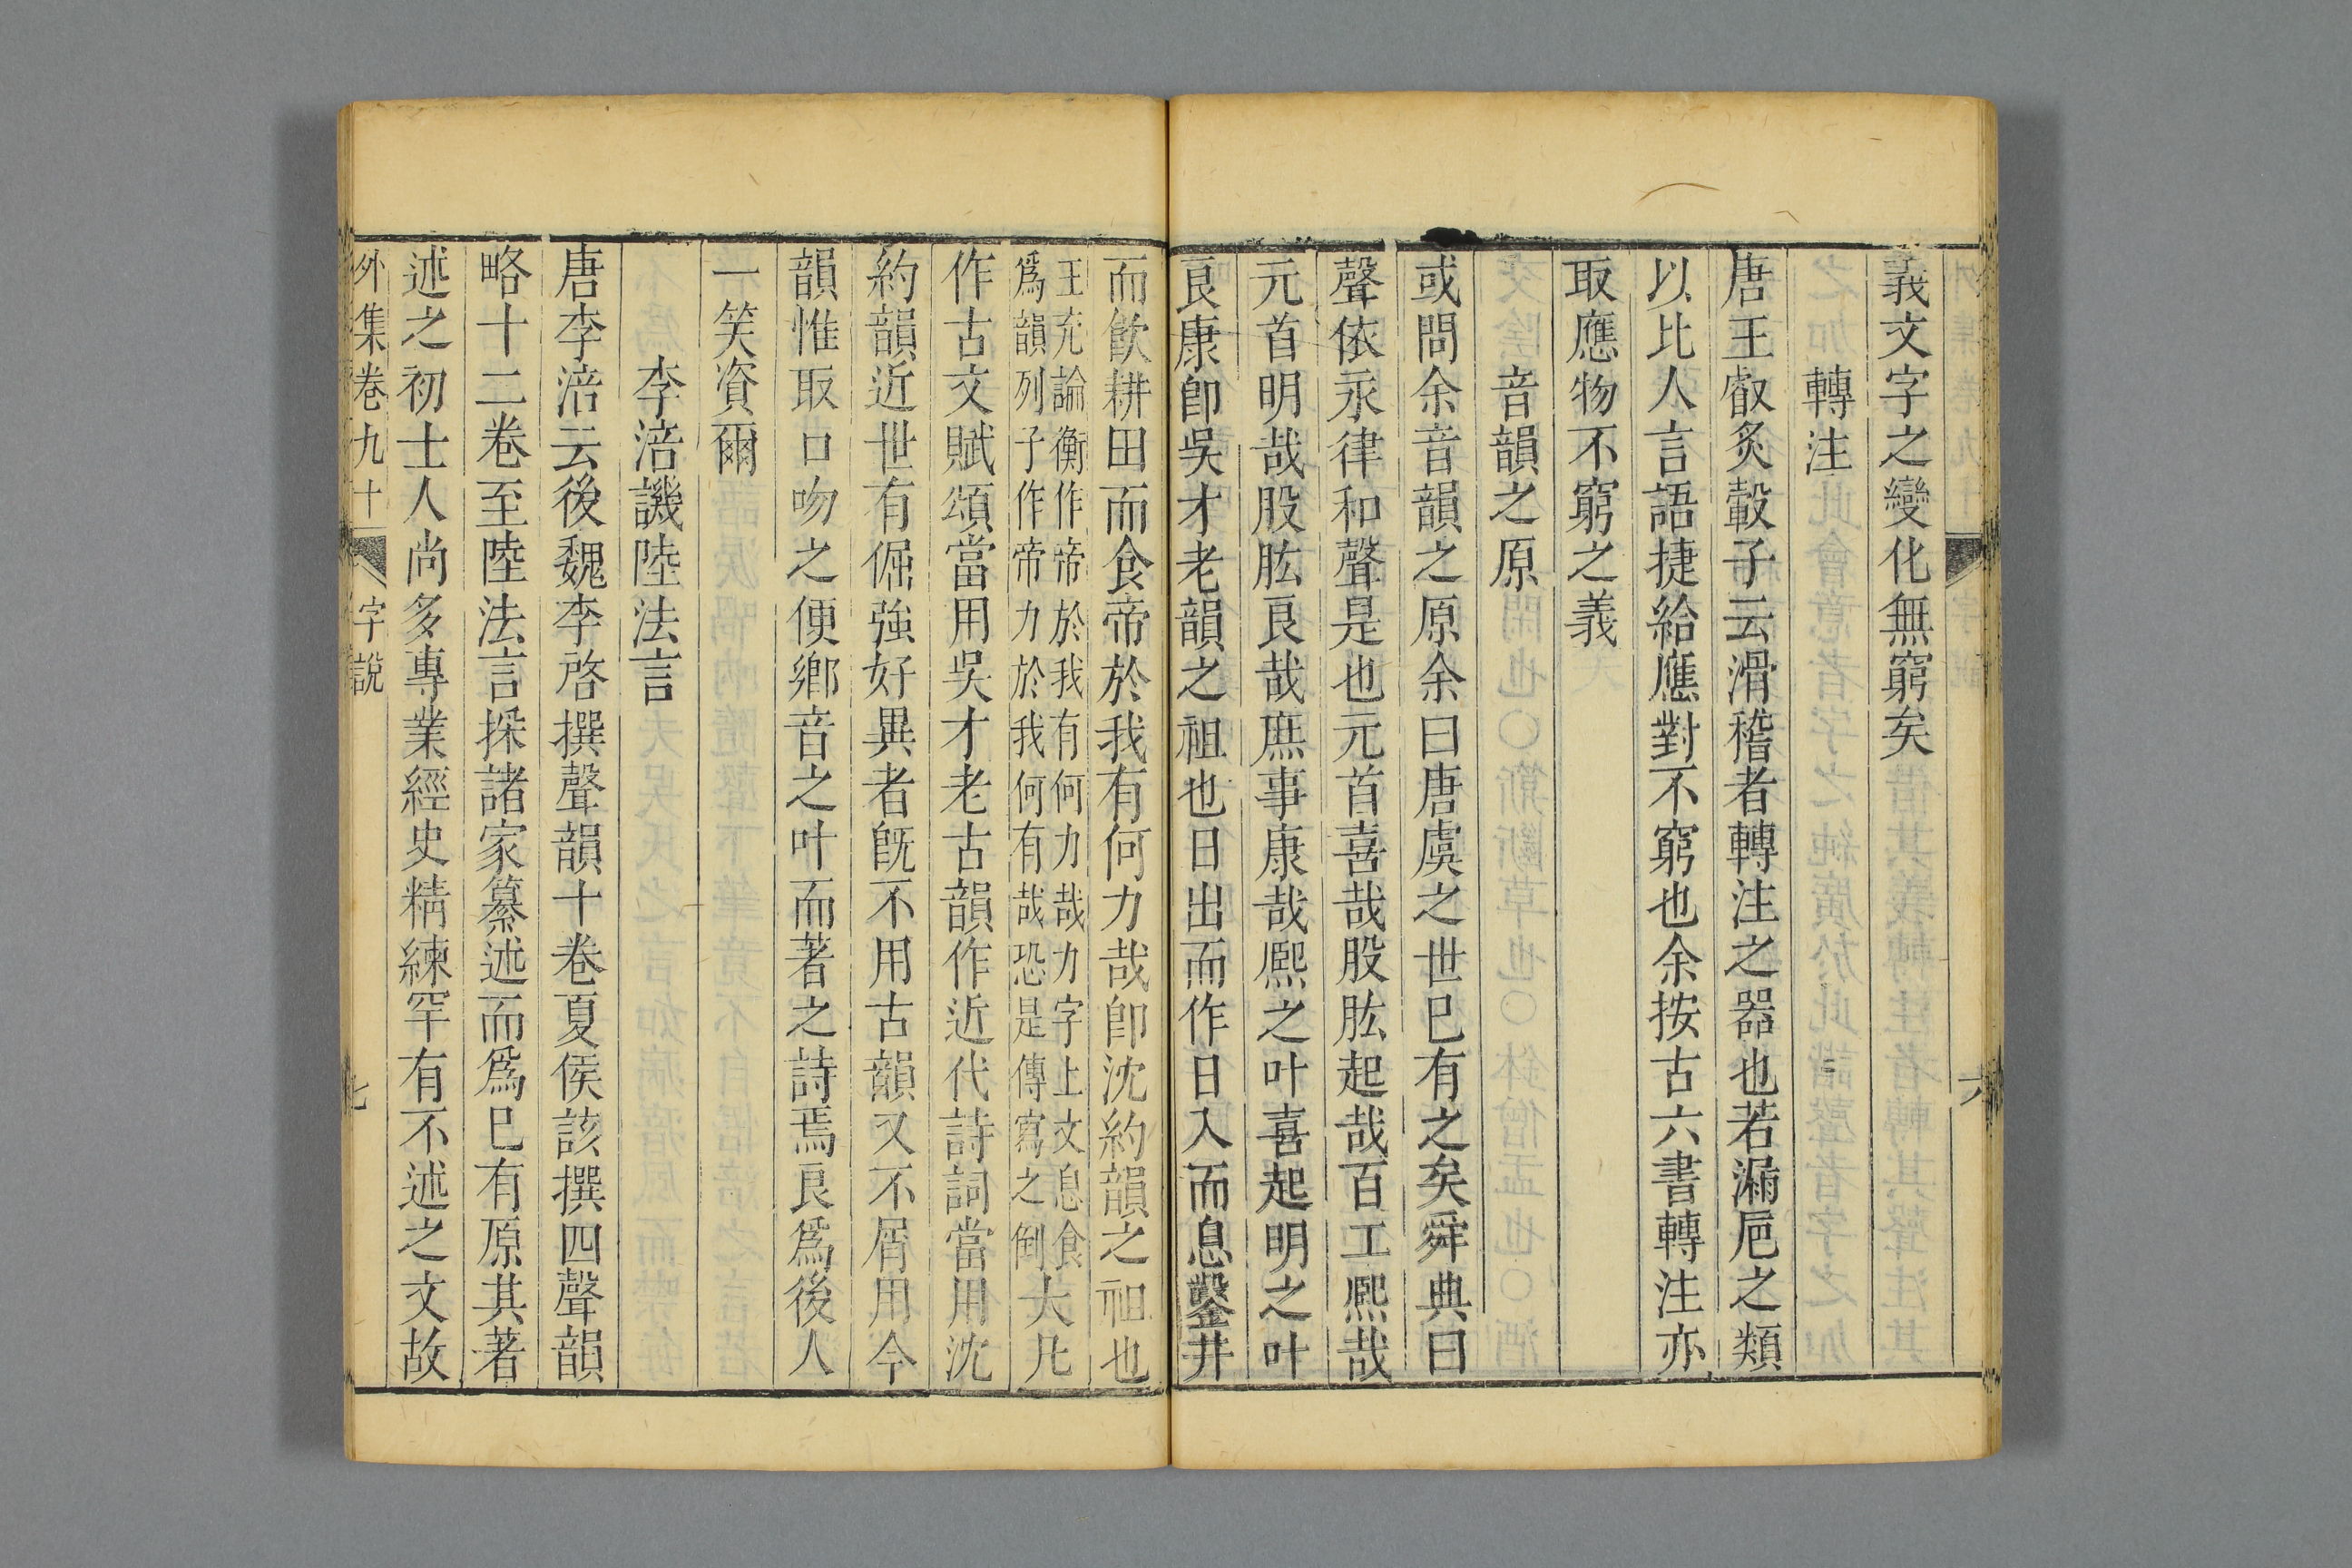 義文字之變化無窮矣
轉注
唐王叡炙轂子云滑稽者轉注之器也若漏巵之類
以比人言語捷給應對不窮也余按古六書轉注亦
取應物不窮之義
音韻之原
或問余音韻之原余曰唐虞之世已有之矣舜典曰
聲依永律和聲是也元首喜哉股肱起哉百工熙哉
元首明哉股肱良哉庶事康哉熙之叶喜起明之叶
良康卽吳才老韻之祖也日出而作日入而息鑿井
六
而飲耕田而食帝於我有何力哉卽沈約韻之祖也
王充論衡作帝於我有何力哉力字上文息食
爲韻列子作帝力於我何有哉恐是傳寫之倒大凡
作古文賦頌當用吳才老古韻作近代詩詞當用沈
約韻近世有倔強好異者旣不用古韻又不屑用今
韻惟取口吻之便鄉音之叶而著之詩焉良爲後人
一笑資爾
李涪譏陸法言
唐李涪云後魏李啓撰聲韻十卷夏侯該撰四聲韻
略十二卷至陸法言採諸家纂述而爲已有原其著
述之初士人尚多專業經史精練罕有不述之文故
外集卷九十 字說
七